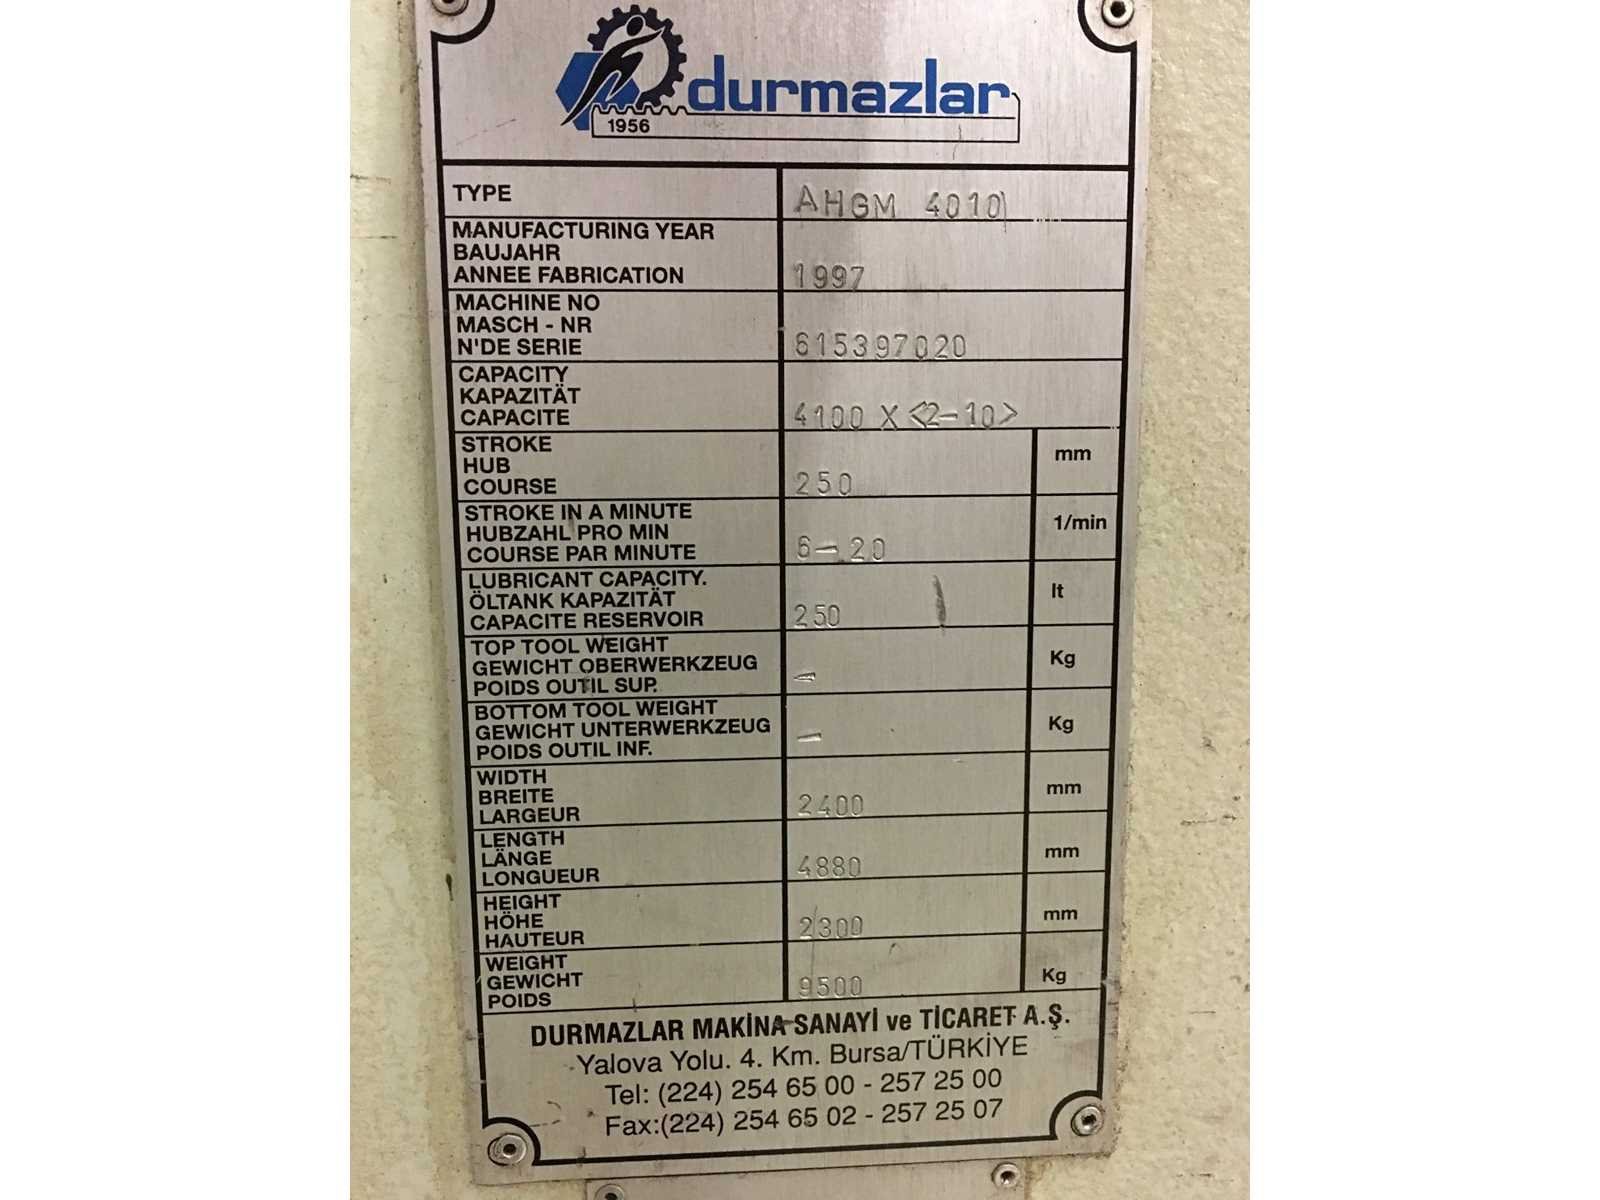 durmazlar
1956
TYPE AHGM 4010
MANUFACTURING YEAR
BAUJAHR
ANNEE FABRICATION 1997
MACHINE NO
MASCH - NR
N'DE SERIE 615397020
CAPACITY
KAPAZITÄT
CAPACITE 4100 X <2-10>
STROKE
HUB mm
COURSE 250
STROKE IN A MINUTE
HUBZAHL PRO MIN 1/min
COURSE PAR MINUTE 6-20
LUBRICANT CAPACITY.
ÖLTANK KAPAZITÄT lt
CAPACITE RESERVOIR 250
TOP TOOL WEIGHT
GEWICHT OBERWERKZEUG Kg
POIDS OUTIL SUP. -
BOTTOM TOOL WEIGHT
GEWICHT UNTERWERKZEUG Kg
POIDS OUTIL INF. -
WIDTH
BREITE mm
LARGEUR 2400
LENGTH
LÄNGE mm
LONGUEUR 4880
HEIGHT
HÖHE mm
HAUTEUR 2300
WEIGHT
GEWICHT Kg
POIDS 9500
DURMAZLAR MAKİNA SANAYİ ve TİCARET A.Ş.
Yalova Yolu. 4. Km. Bursa/TÜRKİYE
Tel: (224) 254 65 00 - 257 25 00
Fax:(224) 254 65 02 - 257 25 07